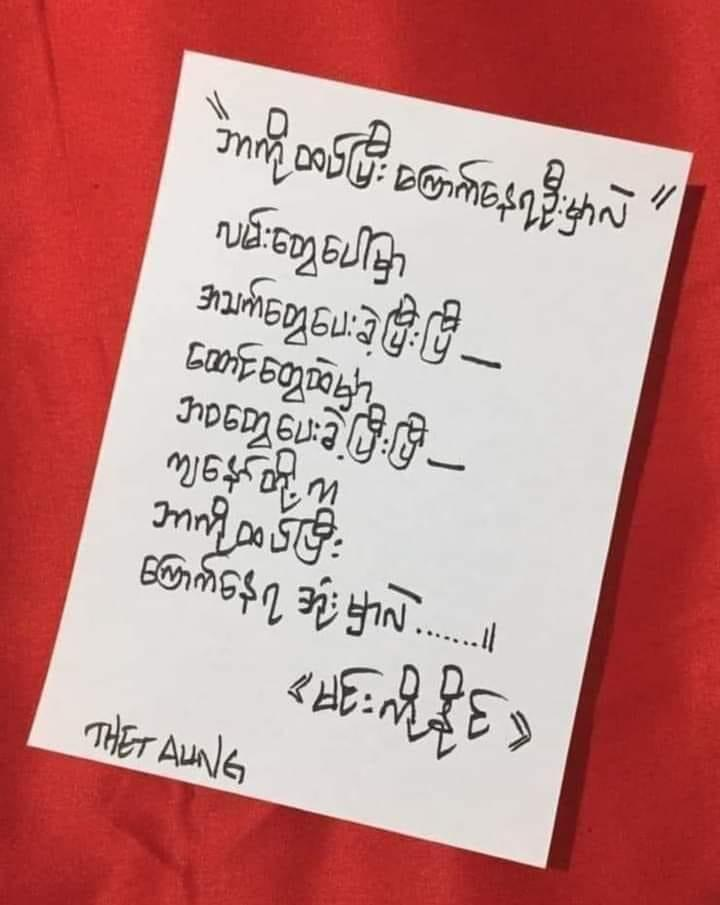 " ဘာကို ထပ်ပြီး ကြောက်နေရဦးမှာလဲ "
လမ်းတွေပေါ်မှာ
အသက်တွေပေးခဲ့ပြီးပြီ —
ထောင်တွေထဲမှာ
ဘဝတွေပေးခဲ့ပြီးပြီ —
ကျနော်တို့ က
ဘာကို ထပ်ပြီး
ကြောက်နေရ အုံးမှာလဲ .......။
《 မင်းကိုနိုင် 》
THET AUNG